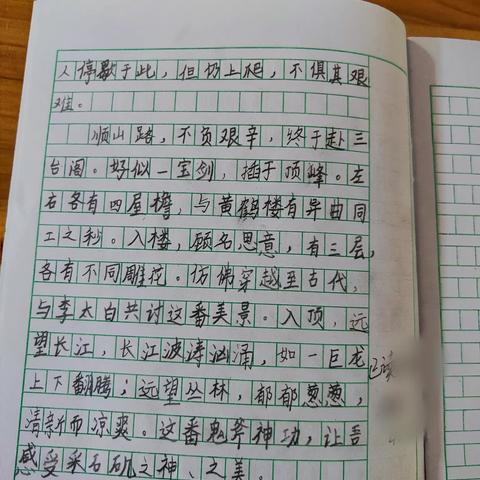 人停歇于此，但仍上爬，不惧其艰
难。
顺山路，不负艰辛，终于赴三
台阁。好似一宝剑，插于顶峰。左
右各有四层檐，与黄鹤楼有异曲同
工之利。入楼，顾名思意，有三层，
各有不同雕花。仿佛穿越至古代，
与李太白共讨这番美景。入顶，远
望长江，长江波涛汹涌，如一巨龙
上下翻腾；远望丛林，郁郁葱葱，
清新而凉爽。这番鬼斧神功，让吾
感受采石矶之神、之美。